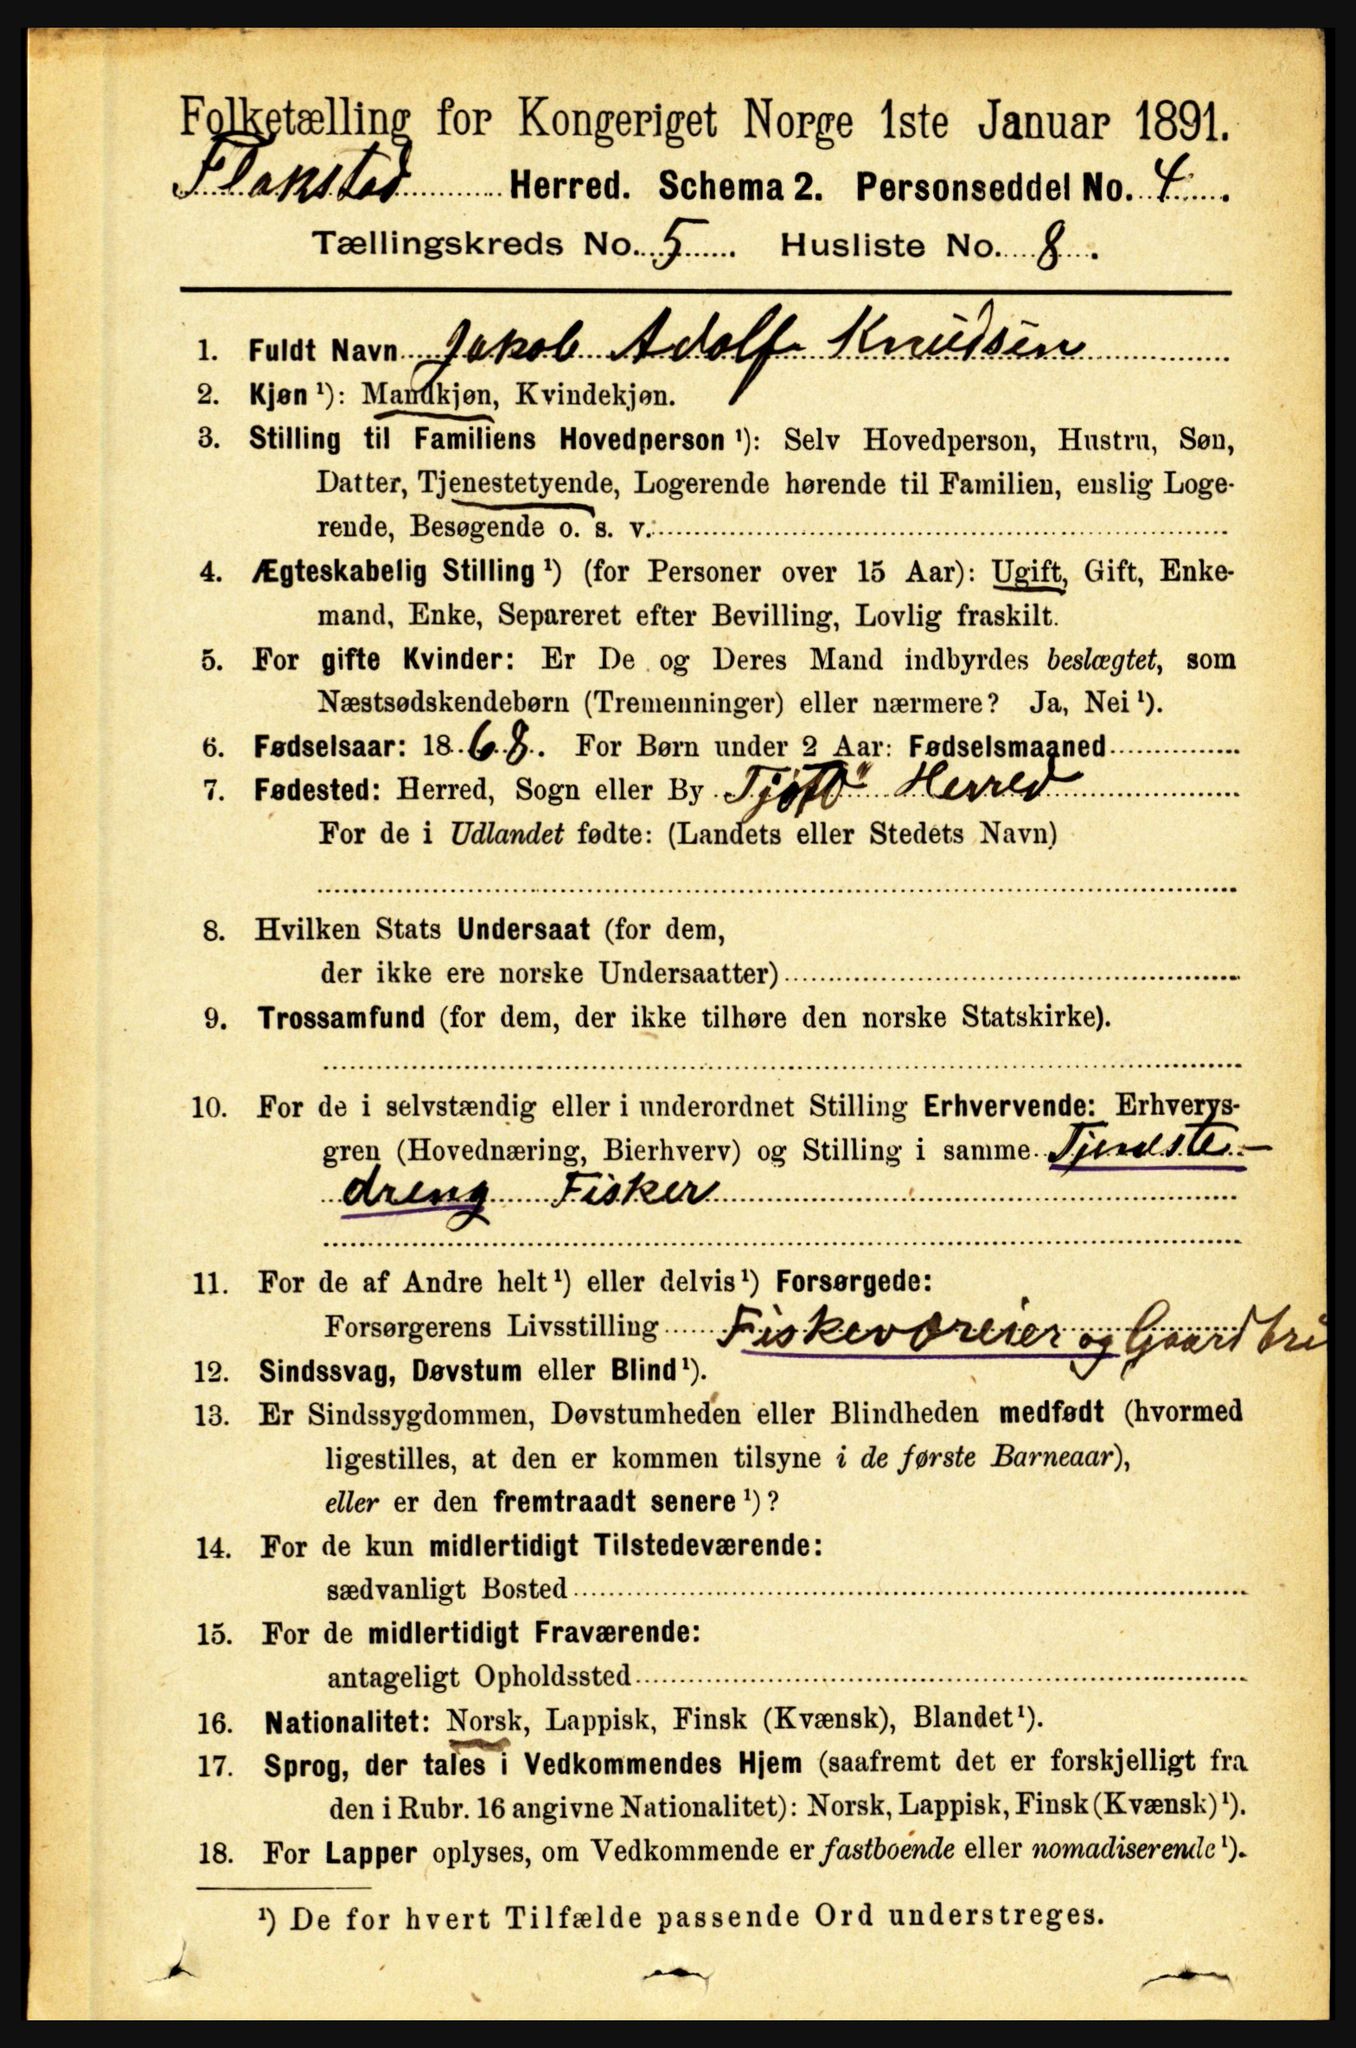 Folketælling for Kongeriget Norge 1ste Januar 1891.
Flakstad Herred. Schema 2. Personseddel No. 4.
Tællingskreds No. 5. Husliste No. 8.
1. Fuldt Navn Jakob Adolf Knudsen
2. Kjøn ¹): Mandkjøn, Kvindekjøn.
3. Stilling til Familiens Hovedperson ¹): Selv Hovedperson, Hustru, Søn,
Datter, Tjenestetyende, Logerende hørende til Familien, enslig Loge-
rende, Besøgende o. s. v.
4. Ægteskabelig Stilling ¹) (for Personer over 15 Aar): Ugift, Gift, Enke-
mand, Enke, Separeret efter Bevilling, Lovlig fraskilt.
5. For gifte Kvinder: Er De og Deres Mand indbyrdes beslægtet, som
Næstsødskendebørn (Tremenninger) eller nærmere? Ja, Nei ¹).
6. Fødselsaar: 1868. For Børn under 2 Aar: Fødselsmaaned
7. Fødested: Herred, Sogn eller By Tjøtö Herred
For de i Udlandet fødte: (Landets eller Stedets Navn)
8. Hvilken Stats Undersaat (for dem,
der ikke ere norske Undersaatter)
9. Trossamfund (for dem, der ikke tilhøre den norske Statskirke).
10. For de i selvstændig eller i underordnet Stilling Erhvervende: Erhvervs-
gren (Hovednæring, Bierhverv) og Stilling i samme Tjeneste-
dreng Fisker
11. For de af Andre helt ¹) eller delvis ¹) Forsørgede:
Forsørgerens Livsstilling Fiskeværeier og Gaardbri
12. Sindssvag, Døvstum eller Blind ¹).
13. Er Sindssygdommen, Døvstumheden eller Blindheden medfødt (hvormed
ligestilles, at den er kommen tilsyne i de første Barneaar),
eller er den fremtraadt senere ¹)?
14. For de kun midlertidigt Tilstedeværende:
sædvanligt Bosted
15. For de midlertidigt Fraværende:
antageligt Opholdssted
16. Nationalitet: Norsk, Lappisk, Finsk (Kvænsk), Blandet ¹).
17. Sprog, der tales i Vedkommendes Hjem (saafremt det er forskjelligt fra
den i Rubr. 16 angivne Nationalitet): Norsk, Lappisk, Finsk (Kvænsk) ¹).
18. For Lapper oplyses, om Vedkommende er fastboende eller nomadiserende ¹).
¹) De for hvert Tilfælde passende Ord understreges.